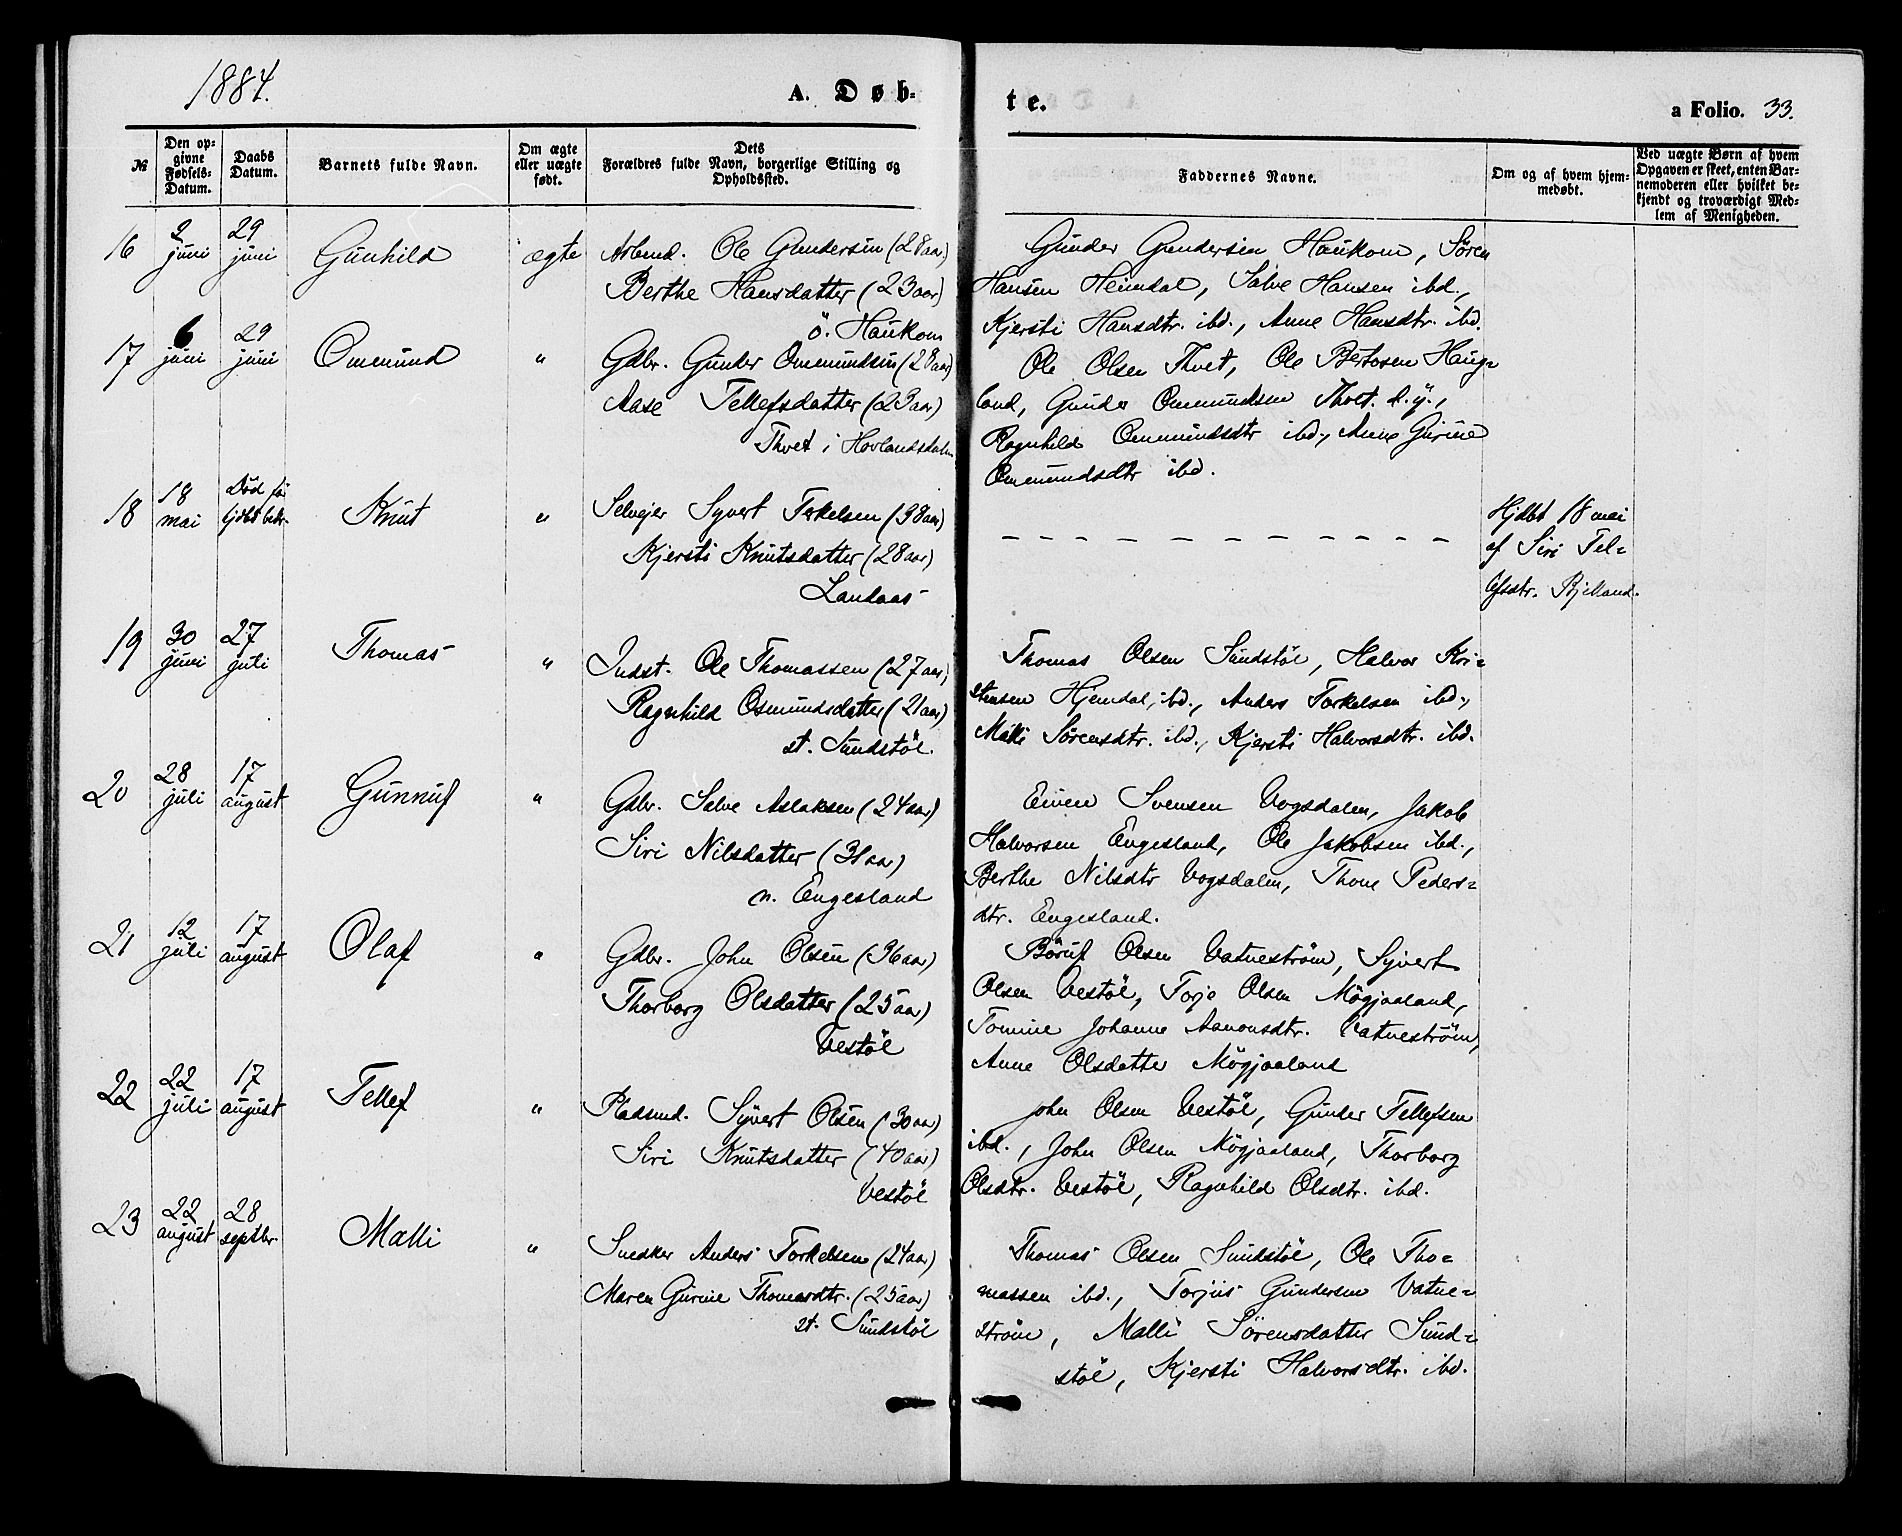 1884.
A. Døb-
te.
a Folio. 33.
№
Den op-
givne
Fødsels-
Datum.
Daabs
Datum.
Barnets fulde Navn.
Om ægte
eller uægte
født.
Dets
Forældres fulde Navn, borgerlige Stilling og
Opholdssted.
Faddernes Navne.
Om og af hvem hjem-
medøbt.
Ved uægte Børn af hvem
Opgaven er skeet, enten Bar-
nemoderen eller hvilket be-
kjendt og troværdigt Med-
lem af Menigheden.
16
2
juni
29
juni
Gunhild
ægte
Arbmd. Ole Gundersen (28 aar)
Berthe Hansdatter (23 aar)
ö. Haukom
Gunder Gundersen Haukom, Sören
Hansen Heimdal, Salve Hansen ibd.,
Kjersti Hansdtr. ibd., Anne Hansdtr. ibd.
17
6
juni
29
juni
Ommund
"
Gdbr. Gunder Ommundsen (28 aar)
Aase Tellefsdatter (23 aar)
Thvet i Hovlandsdalen
Ole Olsen Thvet, Ole Bertosen Haug=
land, Gunder Ommundsen Thvet d. y.,
Ragnhild Ommundsdtr ibd., Anne Gurine
Ommundsdtr ibd.
18
18
mai
Död för
hjdbt bekr.
Knut
"
Selvejer Syvert Terkelsen (38 aar)
Kjersti Knutsdatter (28 aar)
Landaas
– – – – – – – – – – – –
Hjdbt 18 mai
af Siri Tel=
lefsdtr. Bjelland.
19
30
juni
27
juli
Thomas
"
Indst. Ole Thomassen (27 aar)
Ragnhild Osmundsdatter (21 aar)
st. Sundstöl
Thomas Olsen Sundstöl, Halvor Kri=
stensen Hjemdal, ibd., Anders Torkelsen ibd.,
Malli Sörensdtr. ibd., Kjersti Halvorsdtr. ibd.
20
28
juli
17
august
Gunnuf
"
Gdbr. Salve Aslaksen (24 aar)
Siri Nilsdatter (31 aar)
n. Engesland
Eiven Svensen Vogsdalen, Jakob
Halvorsen Engesland, Ole Jakobsen ibd.,
Berthe Nilsdtr Vogsdalen, Thone Peders=
dtr. Engesland.
21
12
juli
17
august
Olaf
"
Gdbr. John Olsen (36 aar)
Thorborg Olsdatter (25 aar)
Vestöl
Böruf Olsen Vatneström, Syvert
Olsen Vestöl, Torje Olsen Mögjaaland,
Tomine Johanne Aanonsdtr. Vatneström,
Anne Olsdatter Mögjaaland
22
22
juli
17
august
Tellef
"
Pladsmd. Syvert Olsen (30 aar)
Siri Knutsdatter (40 aar)
Vestöl
John Olsen Vestöl, Gunder Tellefsen
ibd., John Olsen Mögjaaland, Thorborg
Olsdtr. Vestöl, Ragnhild Olsdtr. ibd.
23
22
august
28
septbr.
Malli
"
Snedker Anders Torkelsen (24 aar)
Maren Gurine Thomasdtr. (25 aar)
st. Sundstöl
Thomas Olsen Sundstöl, Ole Tho=
massen ibd., Torjus Gundersen Vatne=
ström, Malli Sörensdatter Sund=
stöl, Kjersti Halvorsdtr. ibd.